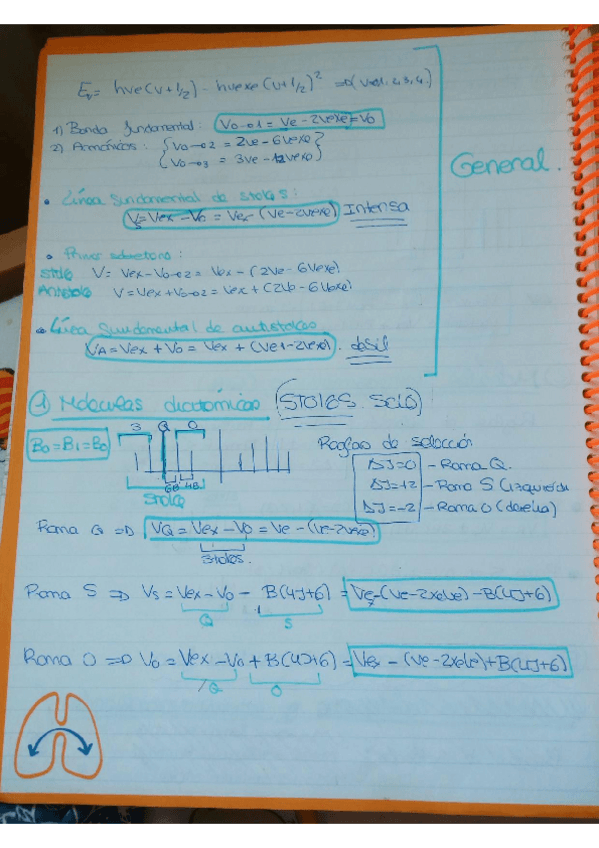 Ev= hve(v+1/2) - hvexe(v+1/2)² => (v=0,1,2,3,4.)
1) Banda fundamental: V0→1 = Ve - 2Vexe = V0
2) Armónicos: { V0→2 = 2Ve - 6Vexe }
{ V0→3 = 3Ve - 12Vexe }
General.
• Línea fundamental de stokes:
Vs = Vex - V0 = Vex - (Ve-2Vexe) Intensa
• Primer sobretono:
Stoke V = Vex - V0→2 = Vex - (2Ve - 6Vexe)
Antistoke V = Vex + V0→2 = Vex + (2Ve - 6Vexe)
• Línea fundamental de antistokes
VA = Vex + V0 = Vex + (Ve-2Vexe). débil
① Moléculas diatómicas (STOKES SOLO)
B0 = B1 = B0
S Q O
6B 4B
Stoke
Reglas de selección
ΔJ=0 - Rama Q.
ΔJ=+2 - Rama S (izquierda
ΔJ=-2 - Rama O (derecha)
Rama Q => VQ = Vex - V0 = Ve - (Ve-2Vexe)
Stokes.
Rama S => Vs = Vex - V0 - B(4J+6) = Vex-(Ve-2xeVe) - B(4J+6)
Q S
Rama O => V0 = Vex - V0 + B(4J+6) = Vex - (Ve-2xeVe) + B(4J+6)
Q O